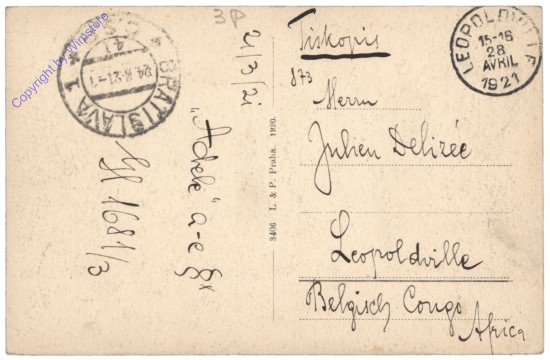 Copyright by Wimstore
BRATISLAVA 1
3P
21/3/21
"Adele" a-e
3406 L. & P. Praha. 1920.
Tiskopis
873
Herrn
Julien Delizée
Leopoldville
Belgisch Congo
Africa
LEOPOLDVILLE
15-16
28
AVRIL
1921